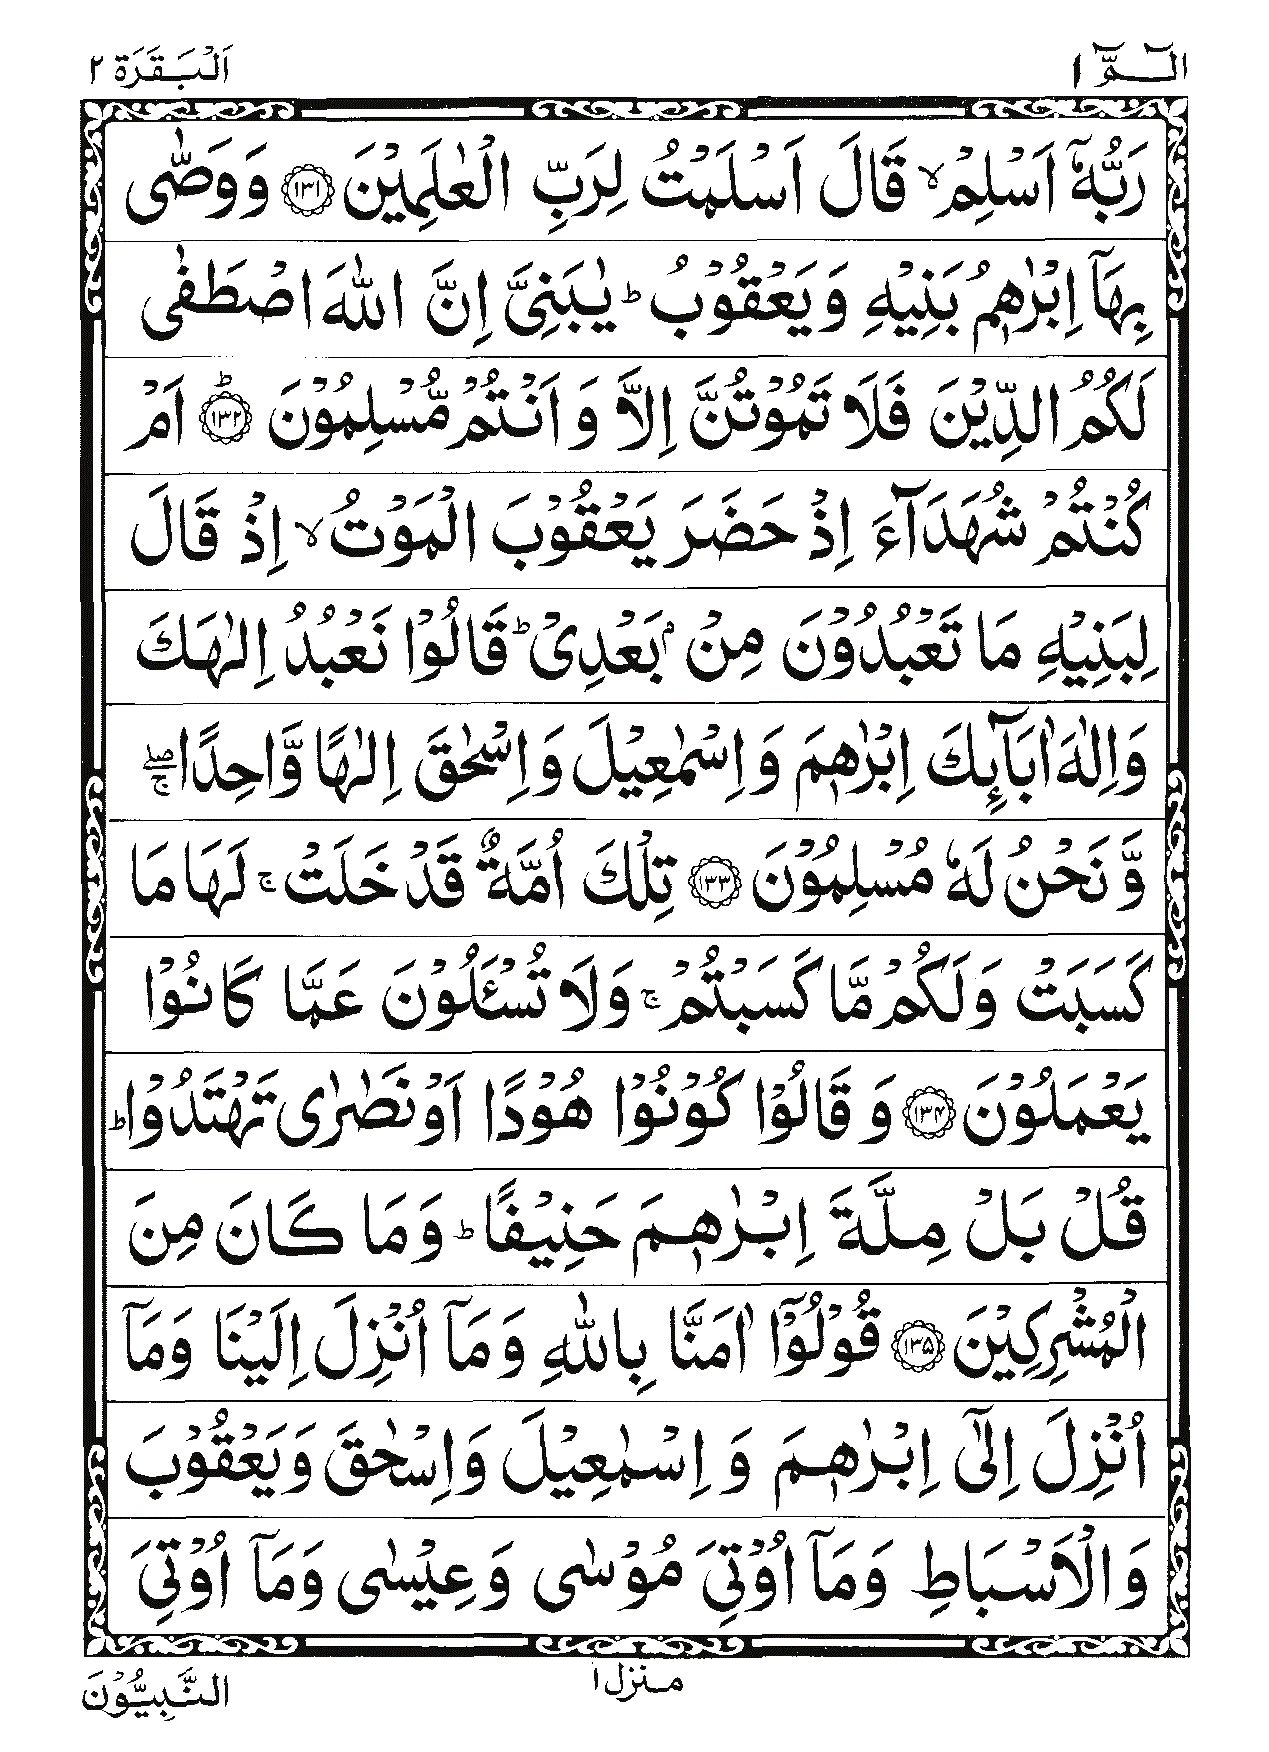 الٓمّٓ ١
اَلْبَقَرَة ٢
رَبُّهٗۤ اَسْلِمْ ۙ قَالَ اَسْلَمْتُ لِرَبِّ الْعٰلَمِیْنَ ۝۱۳۱ وَوَصّٰی
بِهَاۤ اِبْرٰهٖمُ بَنِیْهِ وَیَعْقُوْبُ ؕ یٰبَنِیَّ اِنَّ اللّٰهَ اصْطَفٰی
لَكُمُ الدِّیْنَ فَلَا تَمُوْتُنَّ اِلَّا وَ اَنْتُمْ مُّسْلِمُوْنَ ۝۱۳۲ؕ اَمْ
كُنْتُمْ شُهَدَآءَ اِذْ حَضَرَ یَعْقُوْبَ الْمَوْتُ ۙ اِذْ قَالَ
لِبَنِیْهِ مَا تَعْبُدُوْنَ مِنْۢ بَعْدِیْ ؕ قَالُوْا نَعْبُدُ اِلٰهَكَ
وَاِلٰهَ اٰبَآىِٕكَ اِبْرٰهٖمَ وَ اِسْمٰعِیْلَ وَاِسْحٰقَ اِلٰهًا وَّاحِدًا ۖۚ
وَّ نَحْنُ لَهٗ مُسْلِمُوْنَ ۝۱۳۳ تِلْكَ اُمَّةٌ قَدْ خَلَتْ ۚ لَهَا مَا
كَسَبَتْ وَلَكُمْ مَّا كَسَبْتُمْ ۚ وَلَا تُسْـَٔلُوْنَ عَمَّا كَانُوْا
یَعْمَلُوْنَ ۝۱۳۴ وَ قَالُوْا كُوْنُوْا هُوْدًا اَوْ نَصٰرٰی تَهْتَدُوْا ؕ
قُلْ بَلْ مِلَّةَ اِبْرٰهٖمَ حَنِیْفًا ؕ وَمَا كَانَ مِنَ
الْمُشْرِكِیْنَ ۝۱۳۵ قُوْلُوْۤا اٰمَنَّا بِاللّٰهِ وَمَاۤ اُنْزِلَ اِلَیْنَا وَمَاۤ
اُنْزِلَ اِلٰۤی اِبْرٰهٖمَ وَ اِسْمٰعِیْلَ وَاِسْحٰقَ وَیَعْقُوْبَ
وَالْاَسْبَاطِ وَمَاۤ اُوْتِیَ مُوْسٰی وَعِیْسٰی وَمَاۤ اُوْتِیَ
منزل ١
النَّبِیُّوْنَ